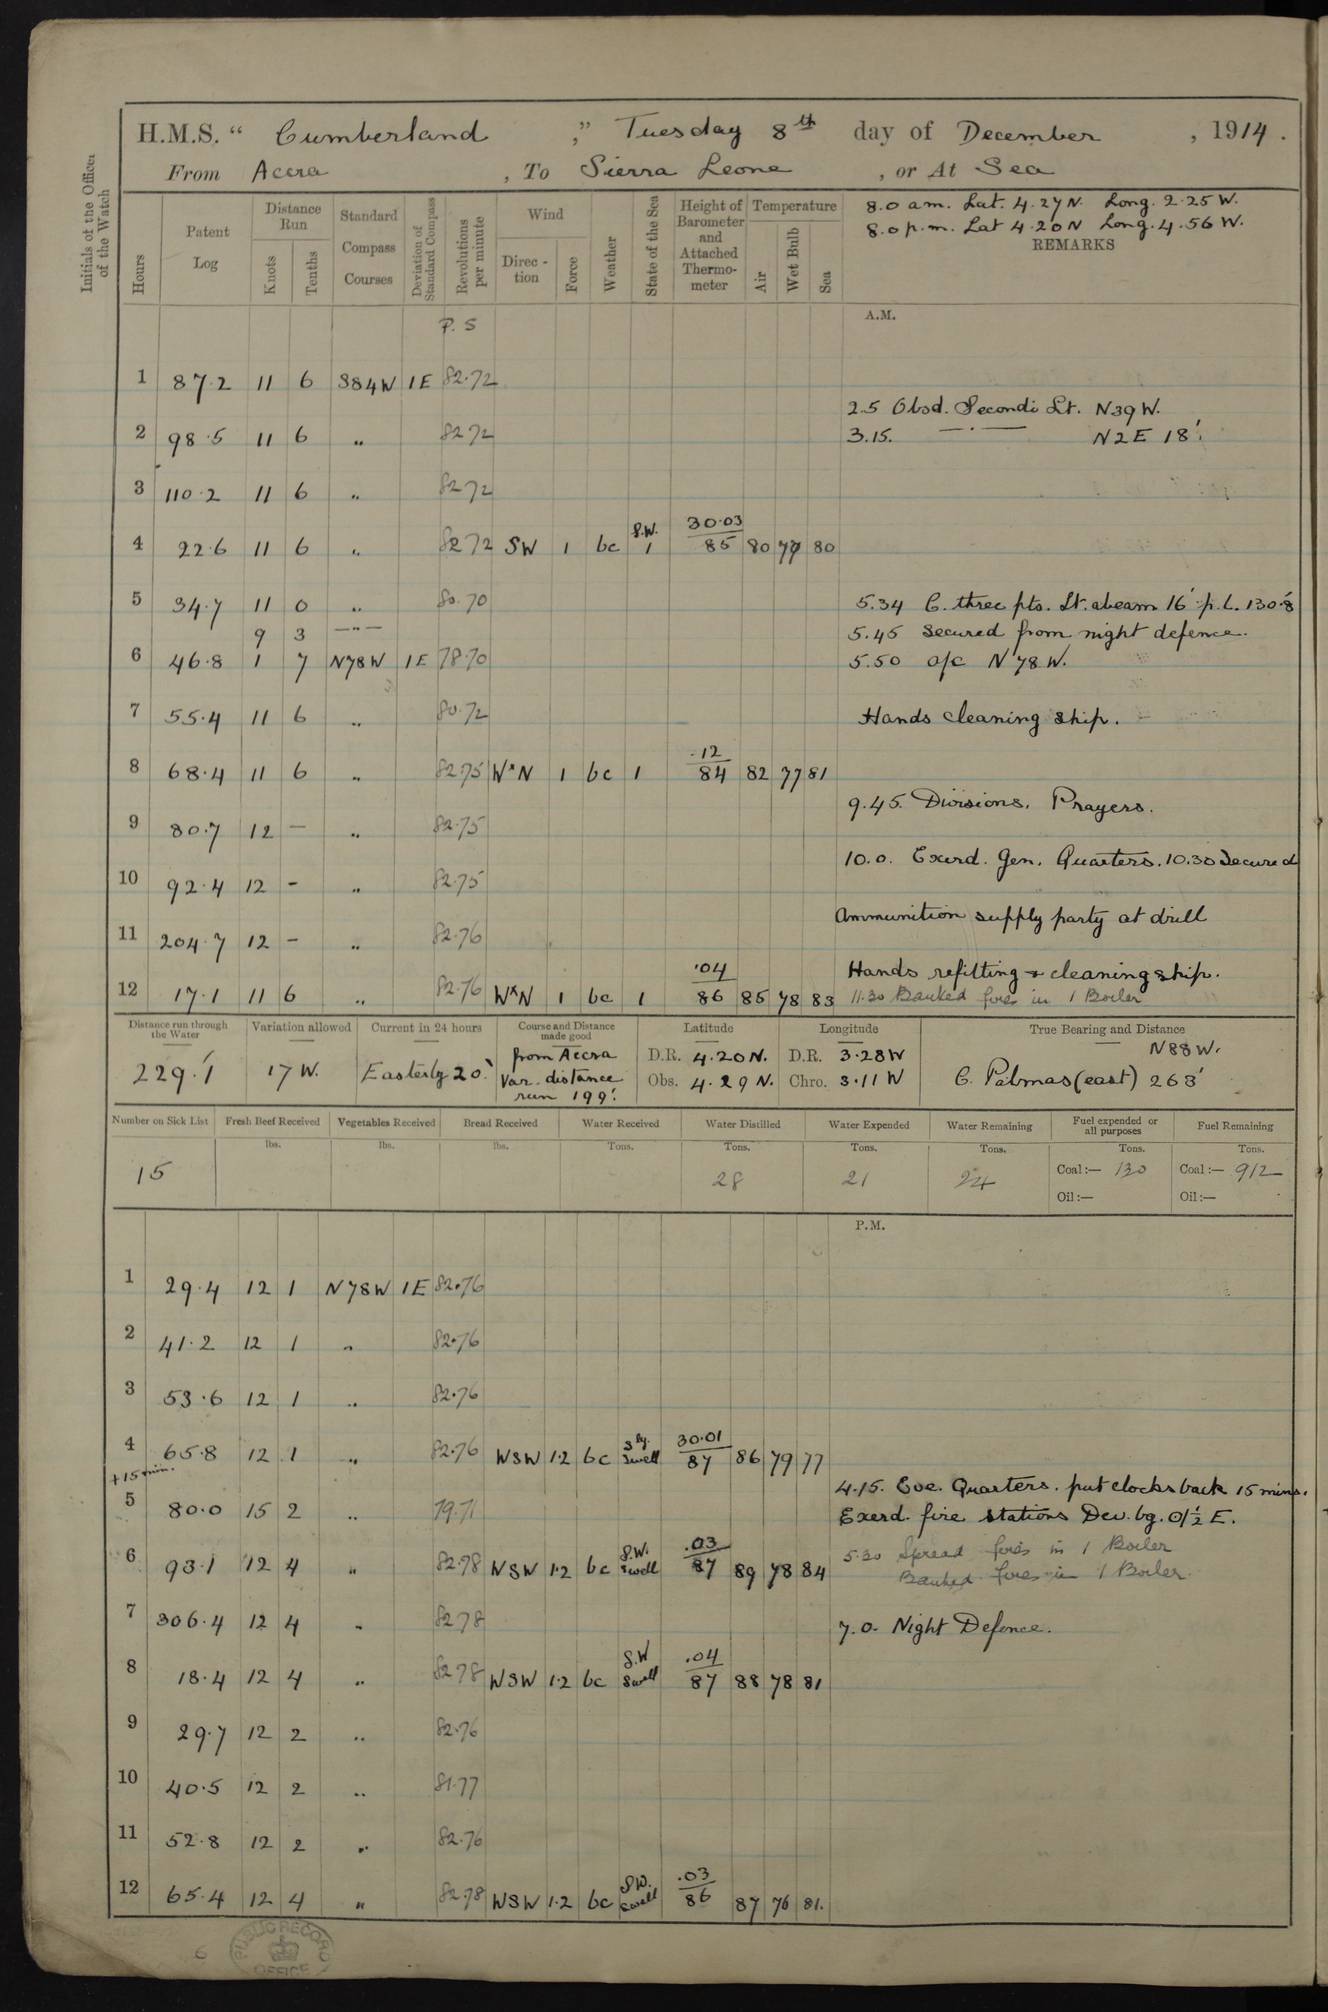 H.M.S. “ Cumberland ,” Tuesday 8th day of December , 1914 .
From Accra , To Sierra Leone , or At Sea
Initials of the Officer of the Watch
Hours
Patent Log
Distance Run
Knots
Tenths
Standard Compass Courses
Deviation of Standard Compass
Revolutions per minute
Wind
Direc-tion
Force
Weather
State of the Sea
Height of Barometer and Attached Thermo-meter
Temperature
Air
Wet Bulb
Sea
8.0 a.m. Lat. 4.27 N. Long. 2.25 W.
8.0 p.m. Lat 4.20 N Long. 4.56 W.
REMARKS
P. S
A.M.
1 87.2 11 6 S84W 1E 82.72
2.5 Obsd. Secondi Lt. N39W.
2 98.5 11 6 „ 82 72
3.15. —·— N2E 18'.
3 110.2 11 6 „ 82 72
4 22.6 11 6 „ 82 72 SW 1 bc S.W. 1 30.03 85 80 79 80
5 34.7 11 0 „ 80.70
5.34 C. three pts. Lt. abeam 16' p.L. 130.8
9 3 —„—
5.45 Secured from night defence.
6 46.8 1 7 N78W 1E 78.70
5.50 a/c N 78 W.
7 55.4 11 6 „ 80.72
Hands cleaning ship.
8 68.4 11 6 „ 82.75 WxN 1 bc 1 .12 84 82 77 81
9.45. Divisions. Prayers.
9 80.7 12 – „ 82.75
10.0. Exerd. Gen. Quarters. 10.30 Secured
10 92.4 12 – „ 82.75
Ammunition supply party at drill
11 204.7 12 – „ 82.76
Hands refitting & cleaning ship.
12 17.1 11 6 „ 82.76 WxN 1 bc 1 .04 86 85 78 83
11.30 Banked fires in 1 Boiler
Distance run through the Water
229.'1
Variation allowed
17 W.
Current in 24 hours
Easterly 20.'
Course and Distance made good
from Accra
Var. distance
run 199'.
Latitude
D.R. 4.20 N.
Obs. 4.29 N.
Longitude
D.R. 3.28 W
Chro. 3.11 W
True Bearing and Distance
N88W.
C. Palmas (east) 263'
Number on Sick List
15
Fresh Beef Received
lbs.
Vegetables Received
lbs.
Bread Received
lbs.
Water Received
Tons.
Water Distilled
Tons.
28
Water Expended
Tons.
21
Water Remaining
Tons.
24
Fuel expended or all purposes
Tons.
Coal :— 130
Oil :—
Fuel Remaining
Tons.
Coal :— 912
Oil :—
P.M.
1 29.4 12 1 N78W 1E 82.76
2 41.2 12 1 „ 82.76
3 53.6 12 1 „ 82.76
4 65.8 12 1 „ 82.76 WSW 1.2 bc Sly. Swell 30.01 87 86 79 77
+15 min.
4.15. Eve. Quarters. put clocks back 15 mins.
5 80.0 15 2 „ 79.71
Exerd. fire stations Dev. bg. 0½ E.
5.30 Spread fires in 1 Boiler
6 93.1 12 4 „ 82.78 WSW 1.2 bc S.W. Swell .03 87 89 78 84
Banked fires in 1 Boiler
7 306.4 12 4 „ 82 78
7.0. Night Defence.
8 18.4 12 4 „ 82 78 WSW 1.2 bc S.W Swell .04 87 88 78 81
9 29.7 12 2 „ 82.76
10 40.5 12 2 „ 81.77
11 52.8 12 2 „ 82.76
12 65.4 12 4 „ 82.78 WSW 1.2 bc SW. Swell .03 86 87 76 81.
6
PUBLIC RECORD OFFICE